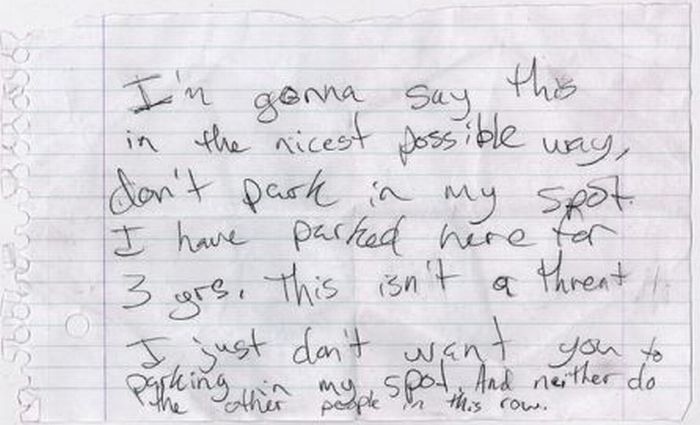 I'm gonna say this
in the nicest possible way,
don't park in my spot.
I have parked here for
3 yrs. This isn't a threat
I just don't want you to
parking in my spot. And neither do
the other people in this row.